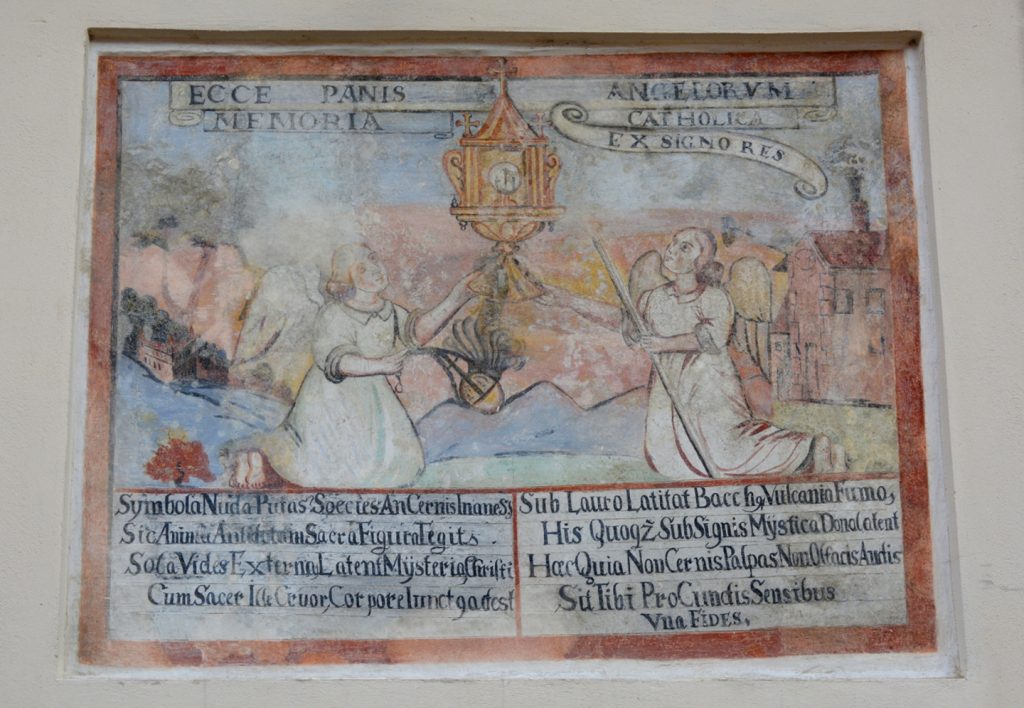 ECCE PANIS ANGELORVM
MEMORIA CATHOLICA
EX SIGNO RES
Symbola Nuda Putas? Species An Cernis Inanes?
Sic Animæ Antidotum Sacra Figura Tegit.
Sola Vides Externa Latent Mÿsteria Christi
Cum Sacer Ide Cruor, Corpore Iunct9 adest
Sub Lauro Latitat Bacch9, Vulcania Fumo,
His Quoqʒ Sub Signis Mÿstica Dona latent
Hæc Quia Non Cernis Palpas Non Olfacis Audis
Sit Tibi Pro Cunctis Sensibus
Vna FIDES.